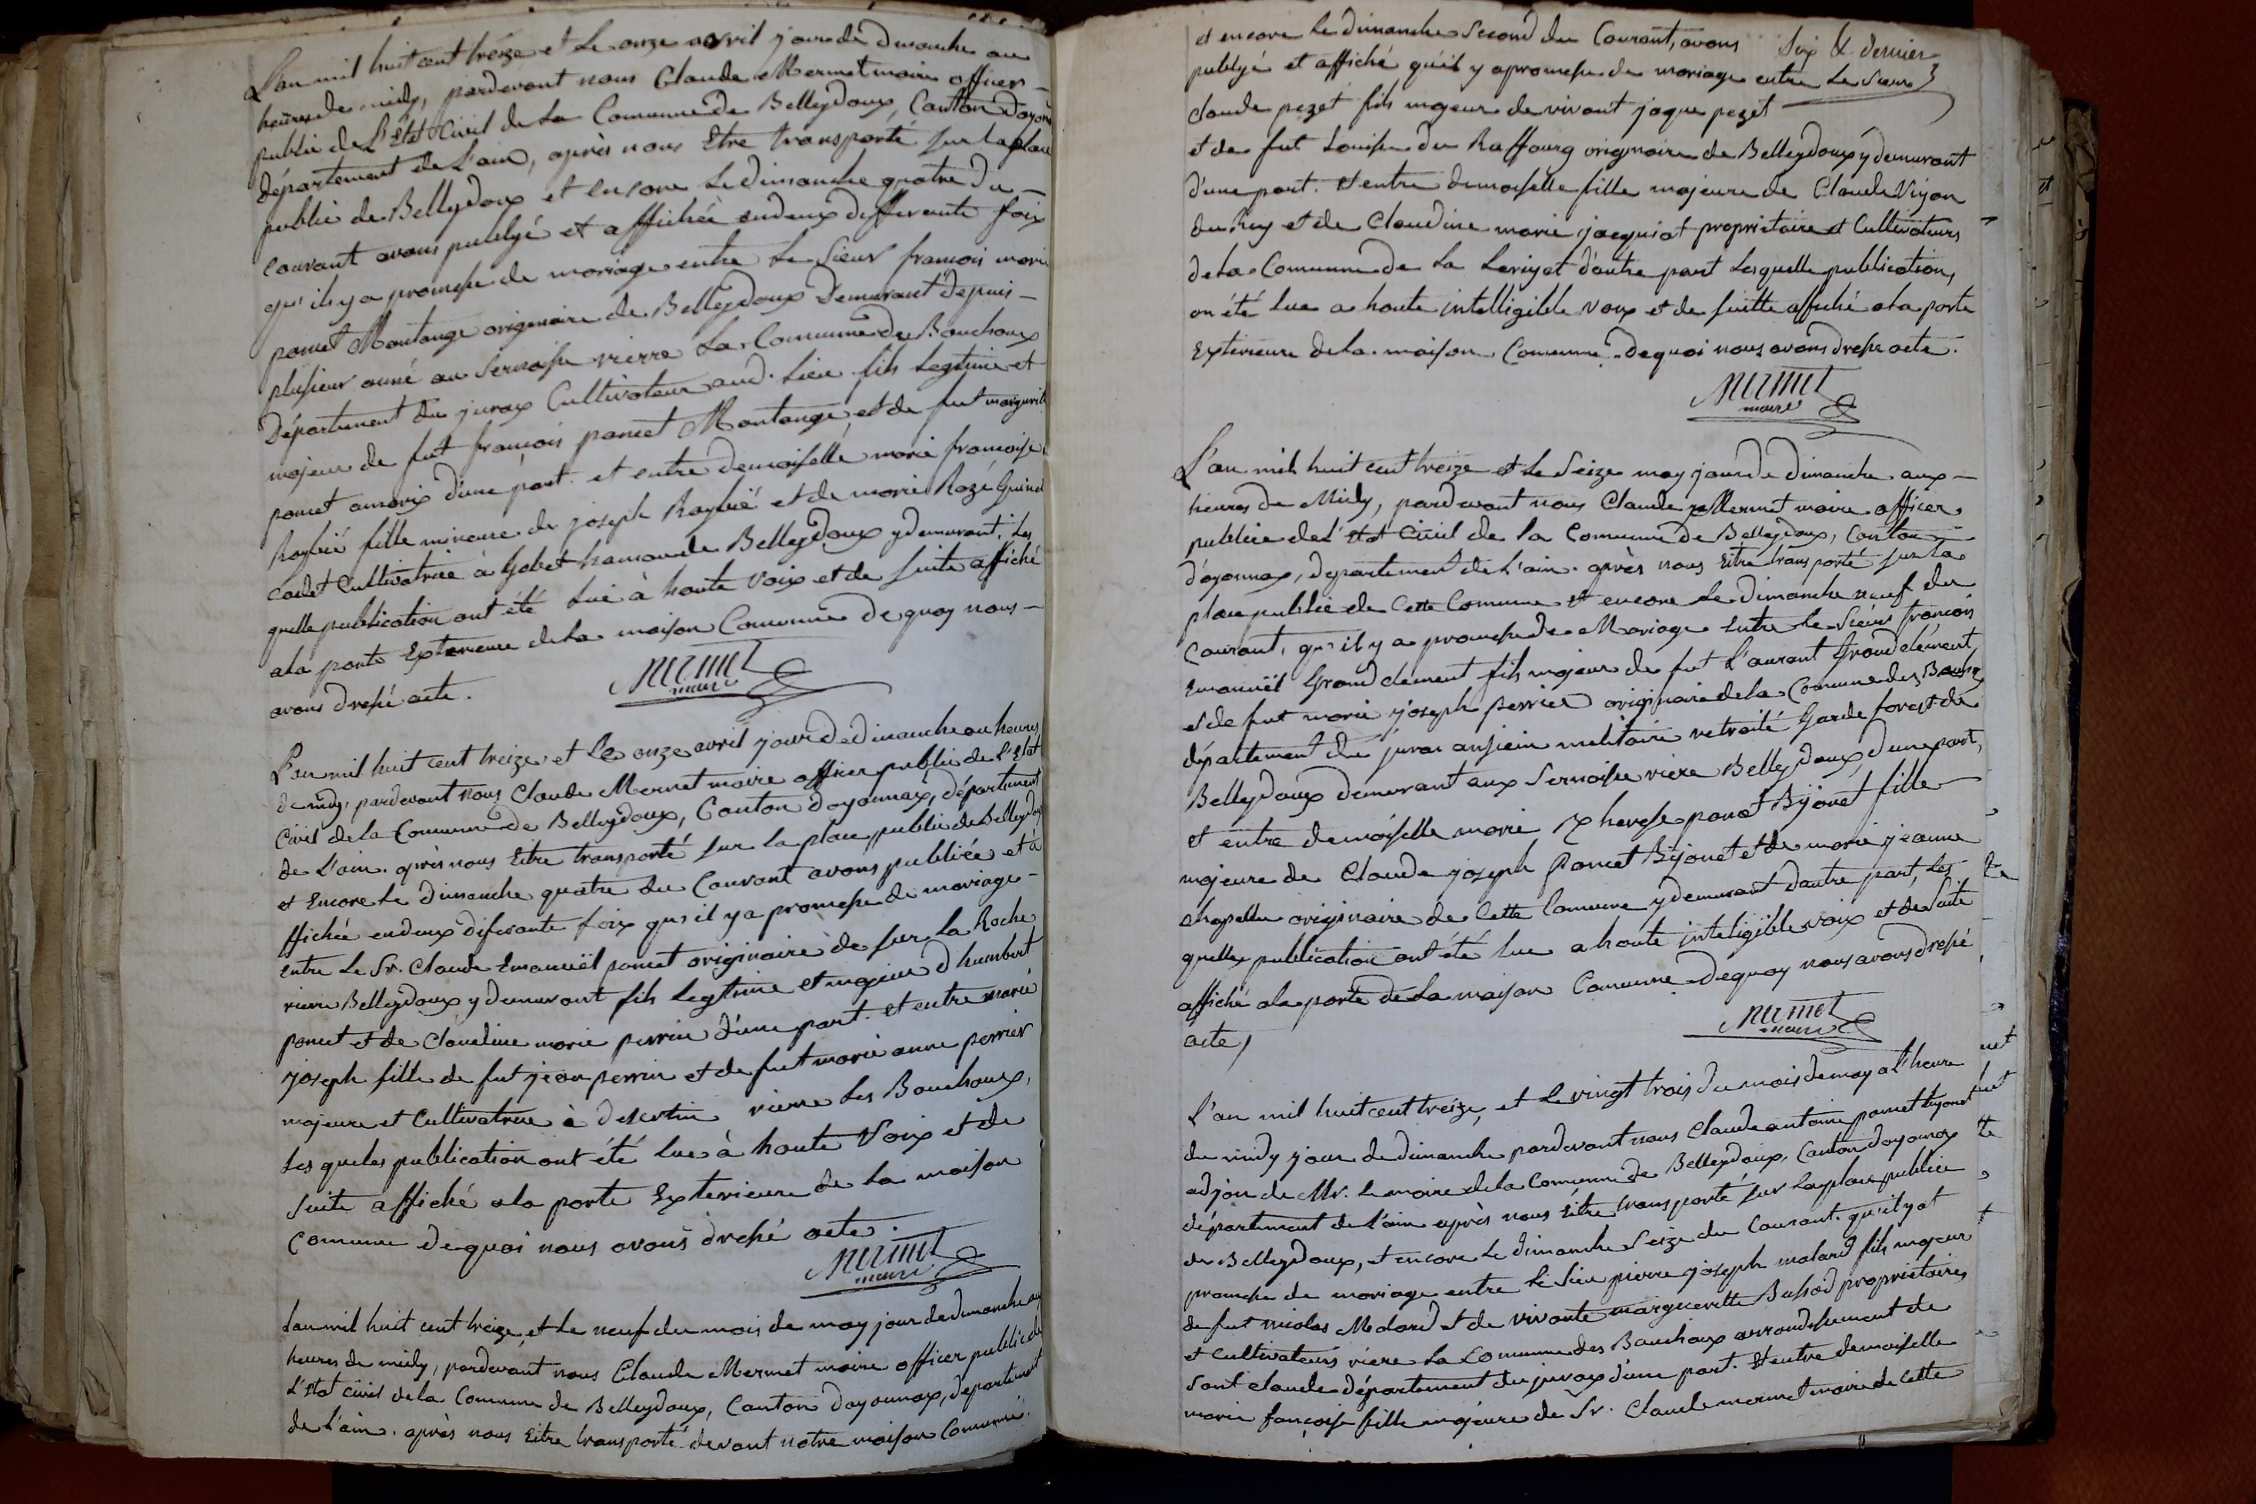 L'an mil huit cent treize et le onze avril jour de dimanche au
heures de midy, pardevant nous Claude Mermet maire officier
public de L'Etat Civil de la Comunne de Belleydoux, Canton d'oyonn
département de L'ain, après nous Etre transporté sur la place
public de Belleydoux et encore le dimanche quatre du
courant avons publyé et affichée en deux differente foix
qu'il y a promesse de mariage entre le Sieur francois marie
poncet Montange originaire de Belleydoux Demurant depuis
plusieur anné au Sernoise rierre la Comunne de Bouchoux
Département du jurax Cultivateur aud. Lieu fils Legtime et
majeur de fut francois poncet Montange et de fut marguerit
poncet d'une part et entre demoiselle marie francoise
fille mineure de joseph et de marie Roze Guined
cadet Cultivatrice à Gobet hamau de Belleydoux y demurant, Les
quelle publication ont été Lue à haute Voix et de suite affiché
a la porte Exterieure de la maison Comunne de quoy nous
avons dressé acte.
Mermet
maire
L'an mil huit cent treize et Le onze avril jour de dimanche au heures
de midy, pardevant nous Claude Mermet maire officier public de L'Etat
Civil de la Comunne de Belleydoux, Canton doyonnax, département
de L'ain. après nous Etre transporté sur la place public de Belleydoux
et Encore le dimanche quatre du Courant avons publiée et a
ffichée en deux diferante foix qu'il y a promesse de mariage
Entre Le Sr. Claude Emanuël poncet originaire de sur la Roche
riere Belleydoux y demurant fils Legtime et majeur d'humbert
poncet et de Claudine marie perrin d'une part. et entre marie
joseph fille de fut jean perrin et de fut marie anne perrier
majeure et Cultivatrice à desertin riere Les Bouchoux,
Les queles publication ont été lue à haute Voix et de
Suite affiché a la porte Exterieure de la maison
Comunne de quoi nous avons dressé acte.
Mermet
maire
L'an mil huit cent treize et le neuf du mois de may jour de dimanche au
heures de midy, pardevant nous Claude Mermet maire officier public de
L'Etat civil de la Comunne de Belleydoux, Canton d'oyonnax, departement
de L'ain. après nous Eitre transporté devant notre maison Comunne.
Six & dernier
et encore le dimanche Second du Courant, avons
publyé et affiché qu'il y a promesse de mariage entre Le Sieur
claude pezet fils majeur de vivant jaque pezet
et de fut Louise du Raffourg originaire de Belleydoux y demurant
d'une part. et entre demoiselle fille majeure de Claude Viyon
du Ruy et de Claudine marie jacquiot proprietaire et Cultivateurs
de la Comunne de La d'autre part Lesquelle publication,
on été Lue a haute intelligible voix et de suitte affiché a la porte
Exterieure de la maison Comunne. de quoi nous avons dressé acte.
Mermet
maire
L'an mil huit cent treize et Le Seize may jour de dimanche aux
heures de Midy, pardevant nous Claude Mermet maire officier
publice de L'Etat Civil de la Comunne de Belleydoux, Canton
d'oyonnax, departement de L'ain. après nous Eitre transporté sur la
place public de Cette Comunne et encore Le dimanche neuf du
Courant, qu'il y a promesse de Mariage Entre Le Sieur francois
Emanuël Grand clement fils majeur de fut L'aurant Grand clément,
et de fut marie joseph perrier originaire de la Comunne des Bouch
département du jurax ansiein militaire retraité Garde forest de
Belleydoux demurant aux Sernoise riere Belleydoux, d'une part,
et entre demoiselle marie Therese poncet Bijouet fille
majeure de Claude joseph poncet Bijouet et de marie jeanne
chapelle originaire de Cette Comunne y demurant d'autre part, Les
quelles publication ont été lue a haute inteligible voix et de suite
affiché a la porte de la maison Comunne. de quoy nous avons dressé
acte /
Mermet
maire
L'an mil huit cent treize, et Le vingt trois du mois de may a l'heure
de midy jour de dimanche pardevant nous Claude antoine poncet bijouet
adjoin de Mr. Le maire de la Comunne de Belleydoux, Canton d'oyonnax
département de L'ain après nous Eitre transporté sur la place public
de Belleydoux, et encore le dimanche Seize du Courant. qu'il y at
promesse de mariage entre Le Sieu pierre joseph molard fils majeur
de fut nicolas Molard et de vivante marguerite Bussod proprietaires
et cultivateurs riere La Comunne des Bouchoux arrondissement de
Sant claude département du jurax d'une part. Et entre demoiselle
marie fançoise fille majeure de Sr. Claude mermet maire de Cette